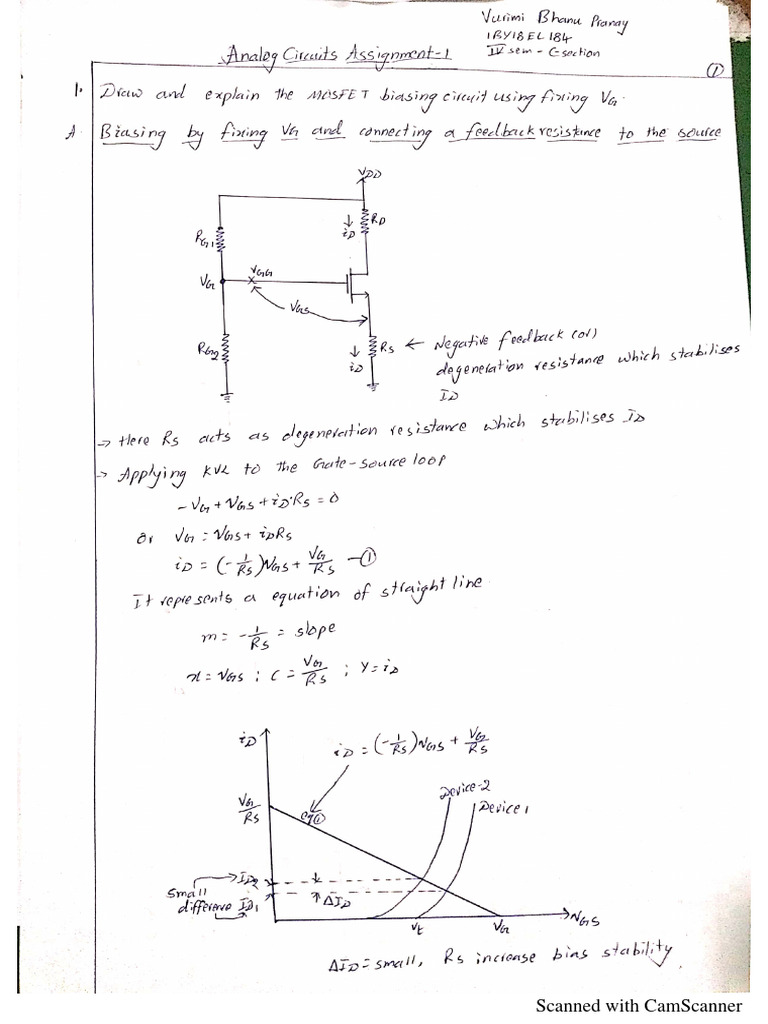 Vurimi Bhanu Pranay
1BY18EL184
IV sem - C-section
Analog Circuits Assignment-1
①
1. Draw and explain the MOSFET biasing circuit using fixing VG.
A. Biasing by fixing VG and connecting a feedback resistance to the source
VDD
RG1
↓ iD
RD
VG
VGG
VGS
RG2
↓ iD
RS ← Negative feedback (or)
degeneration resistance which stabilises
ID
→ Here RS acts as degeneration resistance which stabilises ID
→ Applying KVL to the Gate-source loop
-VG + VGS + iD·RS = 0
or VG = VGS + iDRS
iD = (-1/RS)VGS + VG/RS —①
It represents a equation of straight line.
m = -1/RS = slope
x = VGS ; C = VG/RS ; Y = iD
iD
iD = (-1/RS)VGS + VG/RS
VG/RS
eq①
Device-2
Device 1
ID2
small
difference ID1
ΔID
Vt
VG
VGS
ΔID = small, RS increase bias stability
Scanned with CamScanner